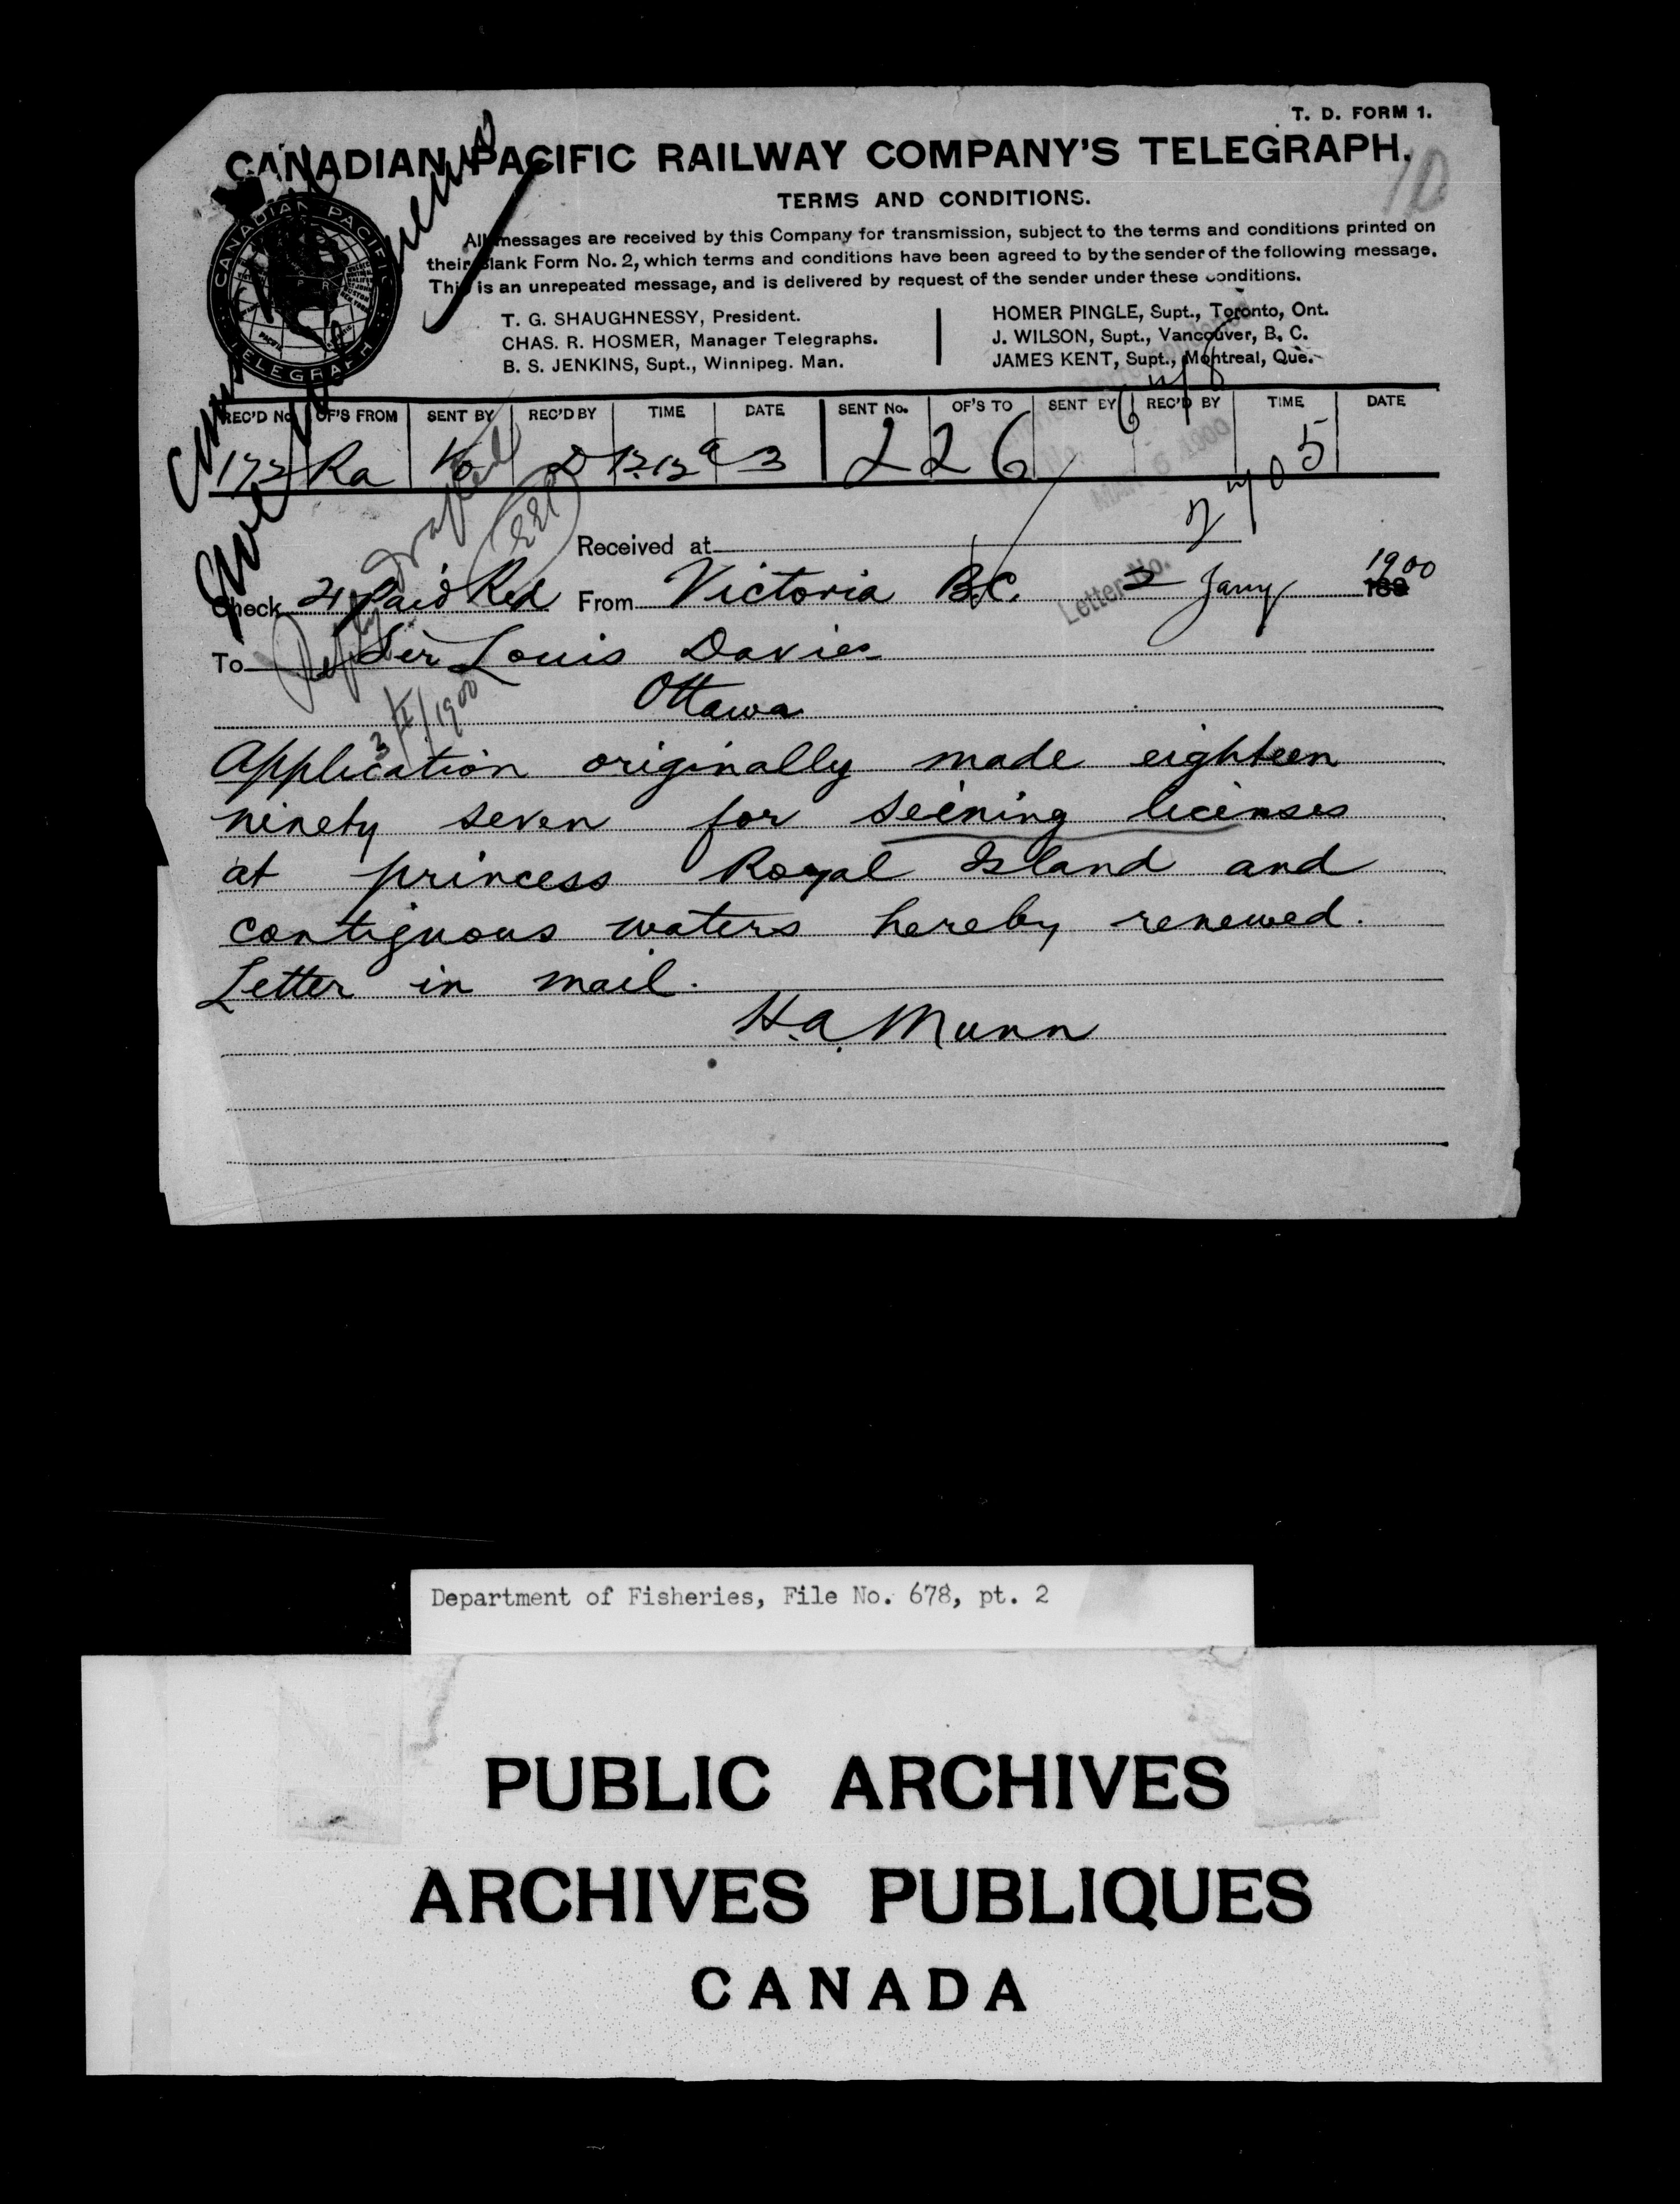 T. D. FORM 1.
CANADIAN PACIFIC RAILWAY COMPANY'S TELEGRAPH.
10
TERMS AND CONDITIONS.
All messages are received by this Company for transmission, subject to the terms and conditions printed on
their Blank Form No. 2, which terms and conditions have been agreed to by the sender of the following message.
This is an unrepeated message, and is delivered by request of the sender under these conditions.
CANADIAN PACIFIC
TELEGRAPH
T. G. SHAUGHNESSY, President.
CHAS. R. HOSMER, Manager Telegraphs.
B. S. JENKINS, Supt., Winnipeg. Man.
HOMER PINGLE, Supt., Toronto, Ont.
J. WILSON, Supt., Vancouver, B. C.
JAMES KENT, Supt., Montreal, Que.
REC'D No. OF'S FROM SENT BY REC'D BY TIME DATE SENT No. OF'S TO SENT BY REC'D BY TIME DATE
172 Ra D 3 226 5
MAR 6 1900
Received at
Letter No.
Check 21 Paid Red From Victoria B.C. 2 Jany 1900
To Sir Louis Davies
Ottawa
3/1/1900
Application originally made eighteen
ninety seven for seining licenses
at princess Royal Island and
contiguous waters hereby renewed.
Letter in mail.
H.A. Munn
Department of Fisheries, File No. 678, pt. 2
PUBLIC ARCHIVES
ARCHIVES PUBLIQUES
CANADA